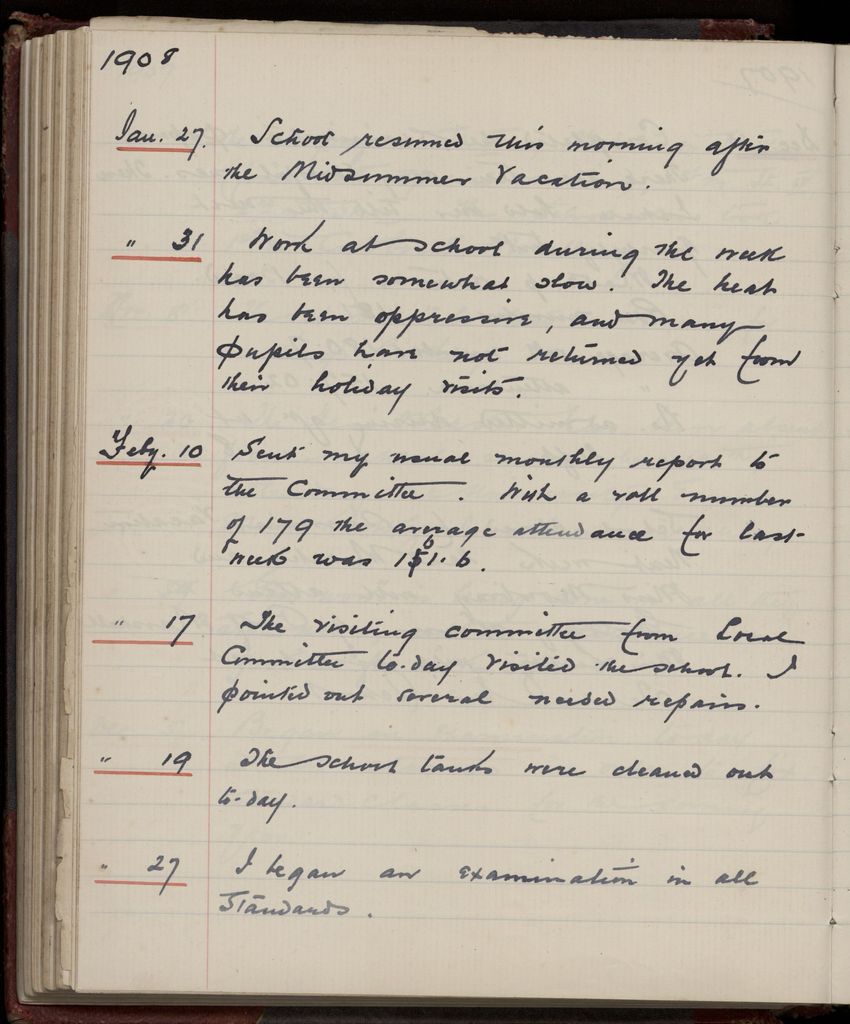 1908
Jan. 27. School resumed this morning after
the Midsummer Vacation.
" 31 Work at school during the week
has been somewhat slow. The heat
has been oppressive, and many
pupils have not returned yet from
their holiday visits.
Feby. 10 Sent my usual monthly report to
the Committee. With a roll number
of 179 the average attendance for last
week was 151.6.
" 17 The visiting committee from Local
Committee to-day visited the school. I
pointed out several needed repairs.
" 19 The school tanks were cleaned out
to-day.
" 27 I began an examination in all
Standards.